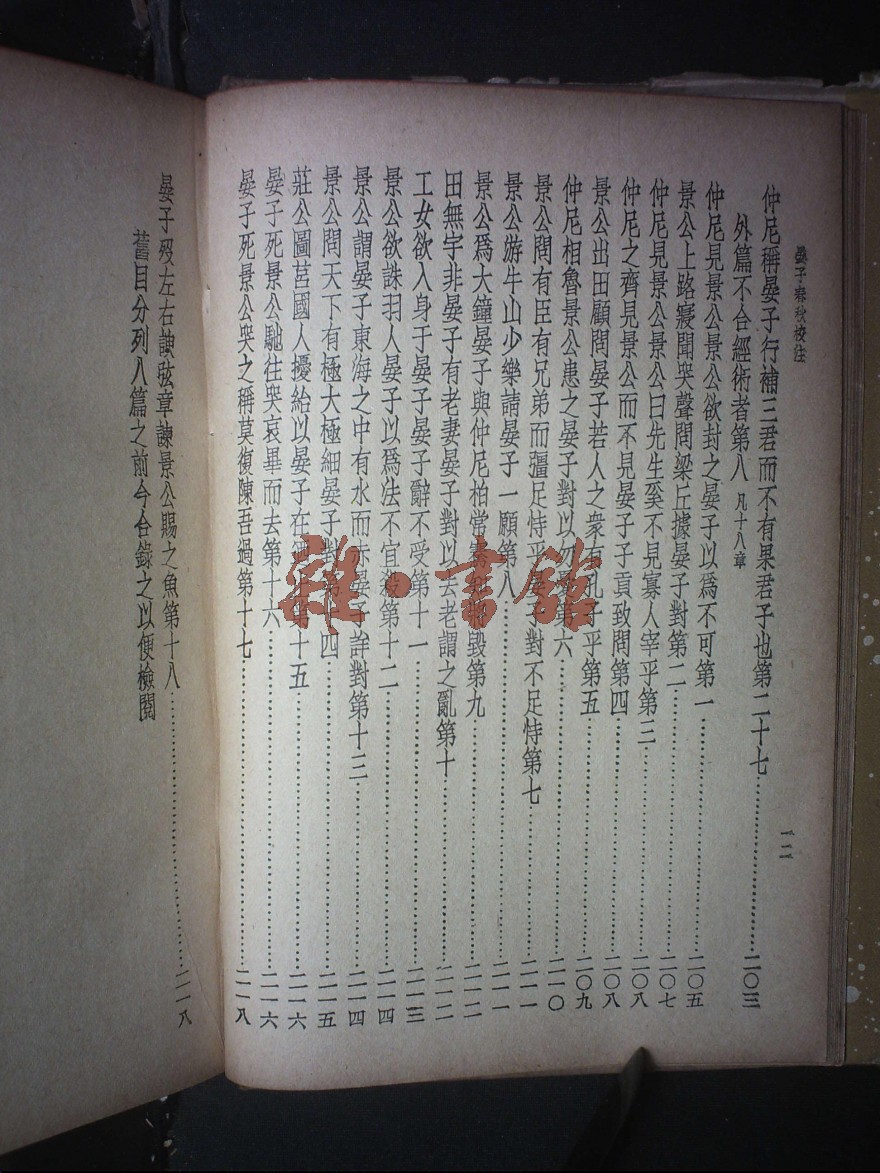 晏子春秋校注
一二
仲尼稱晏子行補三君而不有果君子也第二十七……二〇三
外篇不合經術者第八 凡十八章
仲尼見景公景公欲封之晏子以爲不可第一……二〇五
景公上路寢聞哭聲問梁丘據晏子對第二……二〇七
仲尼見景公景公曰先生奚不見寡人宰乎第三……二〇八
仲尼之齊見景公而不見晏子子貢致問第四……二〇八
景公出田顧問晏子若人之衆有孔子乎第五……二〇九
仲尼相魯景公患之晏子對以勿憂第六……二一〇
景公問有臣有兄弟而彊足恃乎晏子對不足恃第七……二一一
景公游牛山少樂請晏子一願第八……二一一
景公爲大鐘晏子與仲尼柏常騫知將毀第九……二一二
田無宇非晏子有老妻晏子對以去老謂之亂第十……二一二
工女欲入身于晏子晏子辭不受第十一……二一三
景公欲誅羽人晏子以爲法不宜殺第十二……二一四
景公謂晏子東海之中有水而赤晏子詳對第十三……二一四
景公問天下有極大極細晏子對第十四……二一五
莊公圖莒國人擾紿以晏子在第十五……二一六
晏子死景公馳往哭哀畢而去第十六……二一六
晏子死景公哭之稱莫復陳吾過第十七……二一八
晏子歿左右諛弦章諫景公賜之魚第十八……二一八
舊目分列八篇之前今合錄之以便檢閱
雜·書館